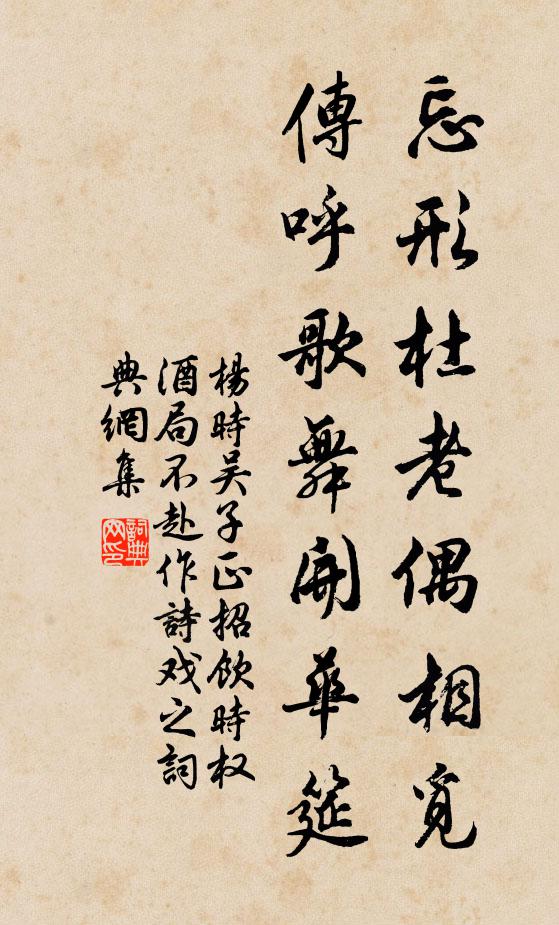 忘形杜老偶相覓
傳呼歌舞開華筵
楊時吳子正招飲時权
酒局不赴作詩戏之詞
典網集
詞典
网印